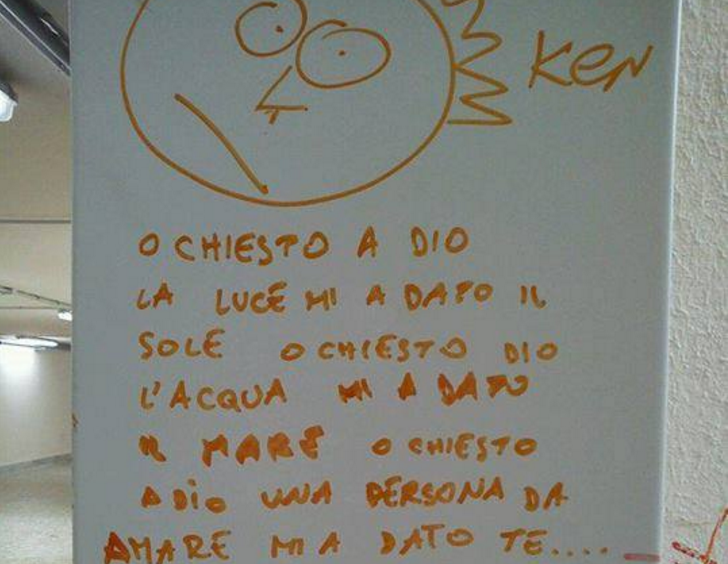 KEN
O CHIESTO A DIO
LA LUCE MI A DATO IL
SOLE O CHIESTO DIO
L'ACQUA MI A DATO
IL MARE O CHIESTO
A DIO UNA PERSONA DA
AMARE MI A DATO TE....